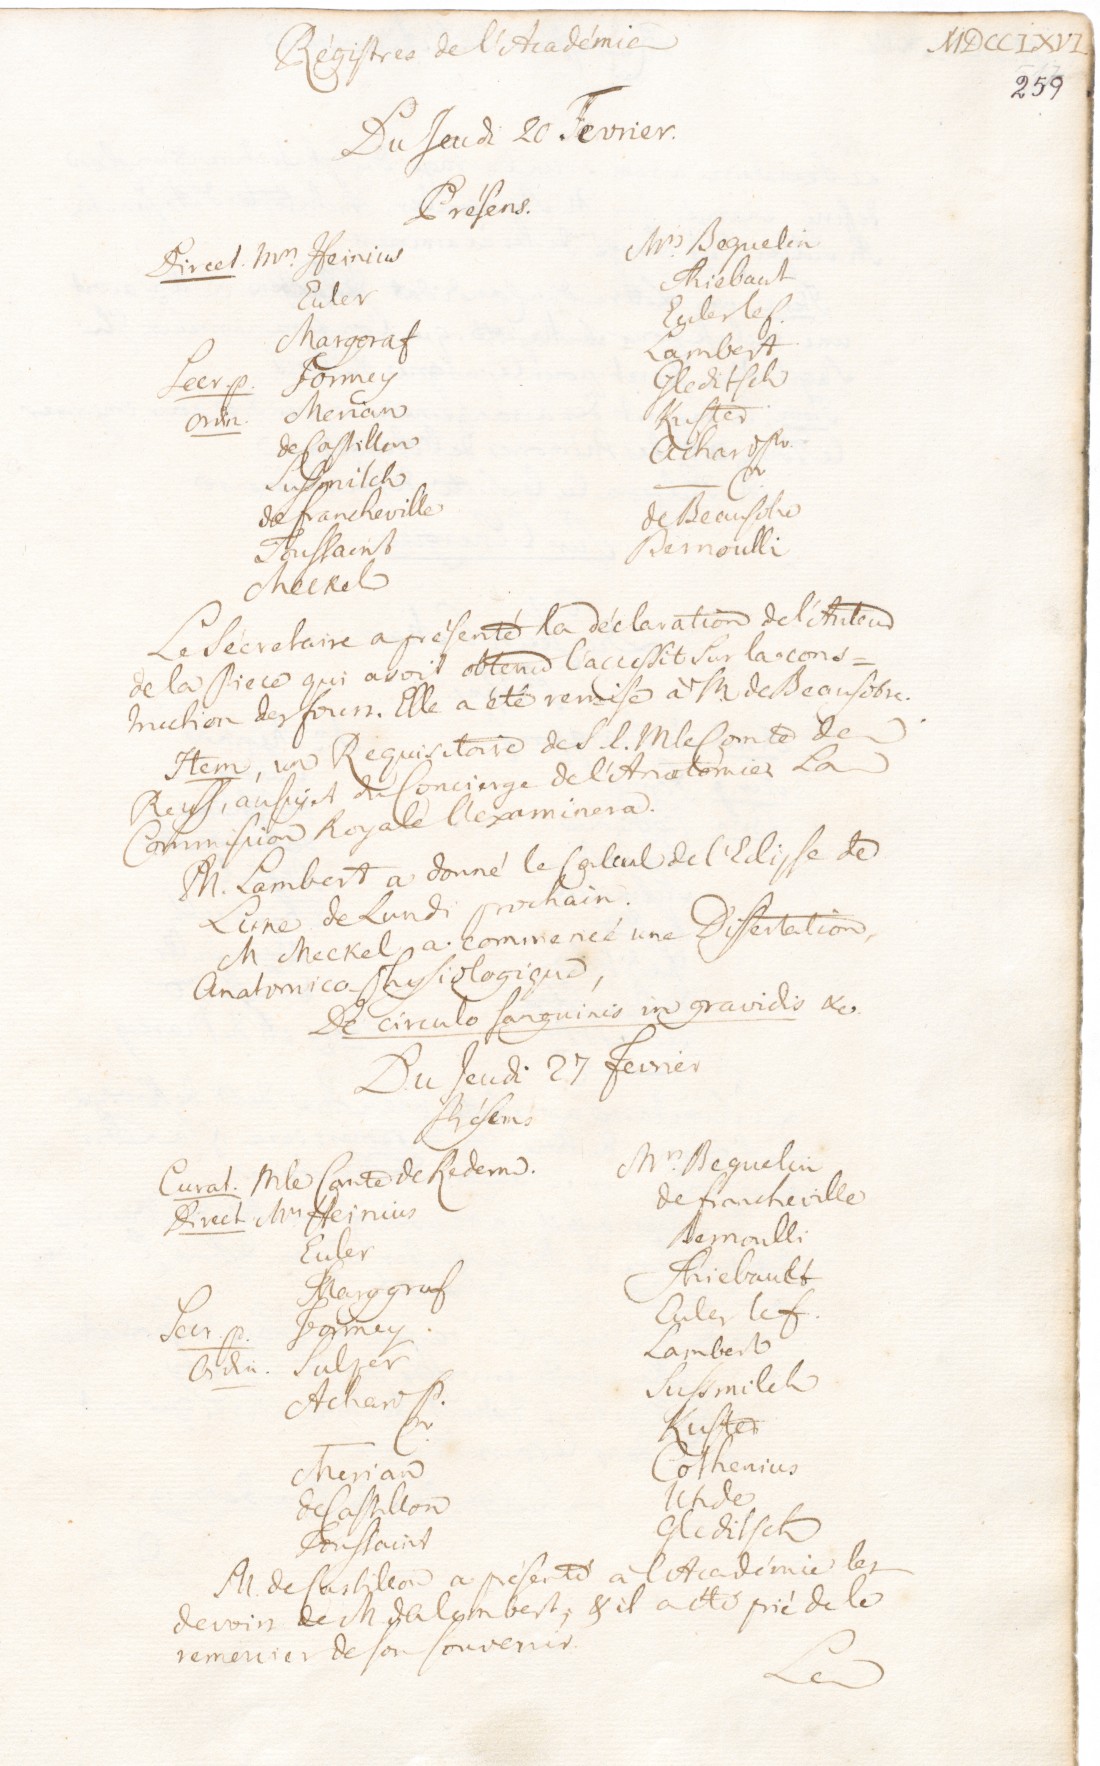 Régistres de l'Académie
MDCCLXVI
259
Du Jeudi 20 Fevrier.
Présens.
Direct. Mrs. Heinius
Euler
Marggraf
Secr. p. Formey
ordin. Merian
de Castillon
Sussmilch
de francheville
Toussaint
Meckel
Mrs. Beguelin
Thiebaut
Euler le f.
Lambert
Gleditsch
Kuster
Achard Pr.
de Beausobre
Bernoulli
Le Sécretaire a présenté la déclaration de l'Auteur
de la Piece qui avoit obtenu l'accessit sur la cons=
truction des fours. Elle a été remise à M. de Beausobre.
Item, un Requisitoire de S. E. M le Comte de
Reuss, au sujet du Concierge de l'Anatomie. La
Commission Royale l'examinera.
M. Lambert a donné le Calcul de l'Eclipse de
Lune de Lundi prochain.
M Meckel a commencé une Dissertation,
Anatomico-Physiologique,
De circulo sanguinis in gravidis &c.
Du Jeudi 27 Fevrier
Présens
Curat. M le Comte de Redern.
Direct Mrs Heinius
Euler
Marggraf
Secr. p. Formey.
Ordin. Sulzer
Achard P.
Merian
de Castillon
Toussaint
Mrs. Beguelin
de francheville
Bernoulli
Thiebault
Euler le f.
Lambert
Sussmilch
Kuster
Cothenius
Uhde
Gleditsch
M. de Castillon a présenté à l'Académie les
devoirs de M d'Alembert, & il a été prié de le
remercier de son souvenir.
Le